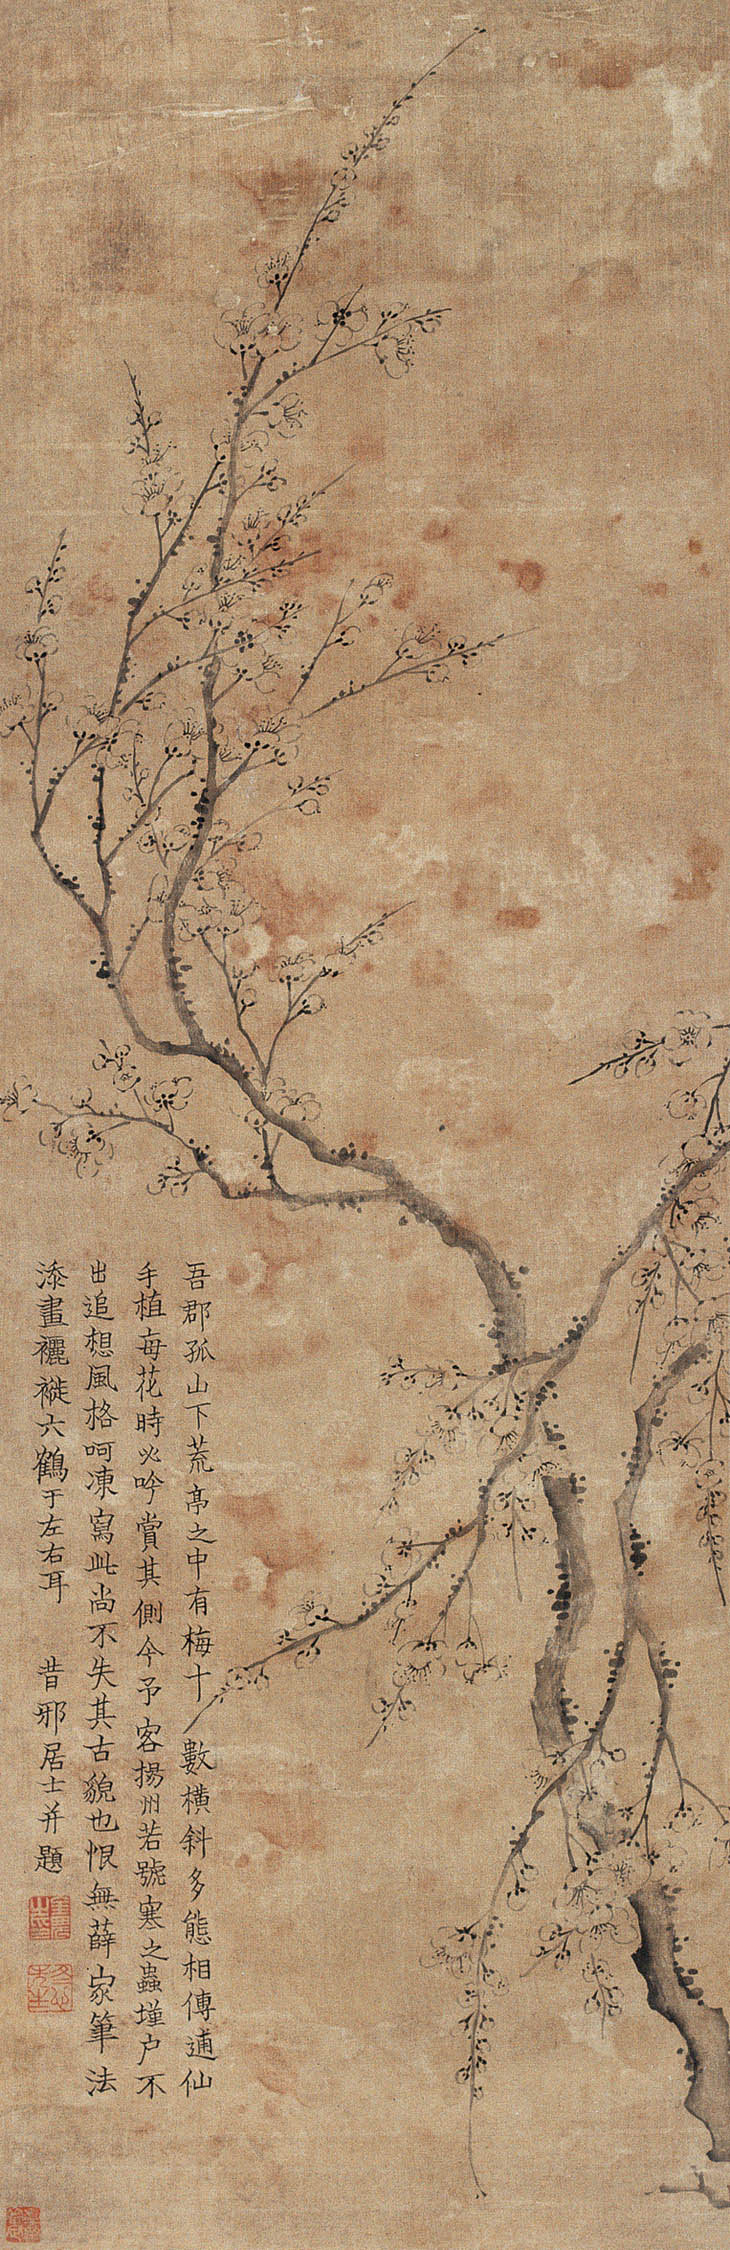 吾郡孤山下荒亭之中有梅十數橫斜多態相傳逋仙
手植每花時必吟賞其側今予客揚州若號寒之蟲墐户不
出追想風格呵凍寫此尚不失其古貌也恨無薛家筆法
添畫襹褷六鶴于左右耳　昔邪居士并題